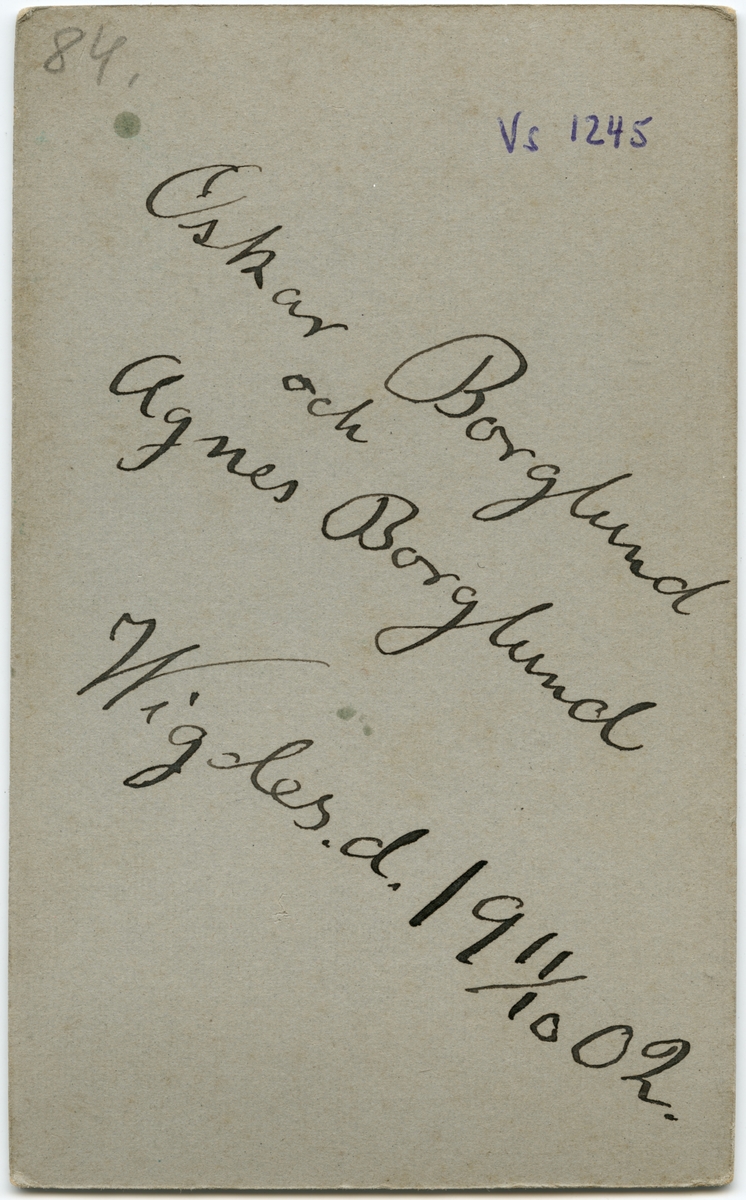 84.
Vs 1245
Oskar Borglund
och
Agnes Borglund
Wigdes. d. 19 11/10 02.